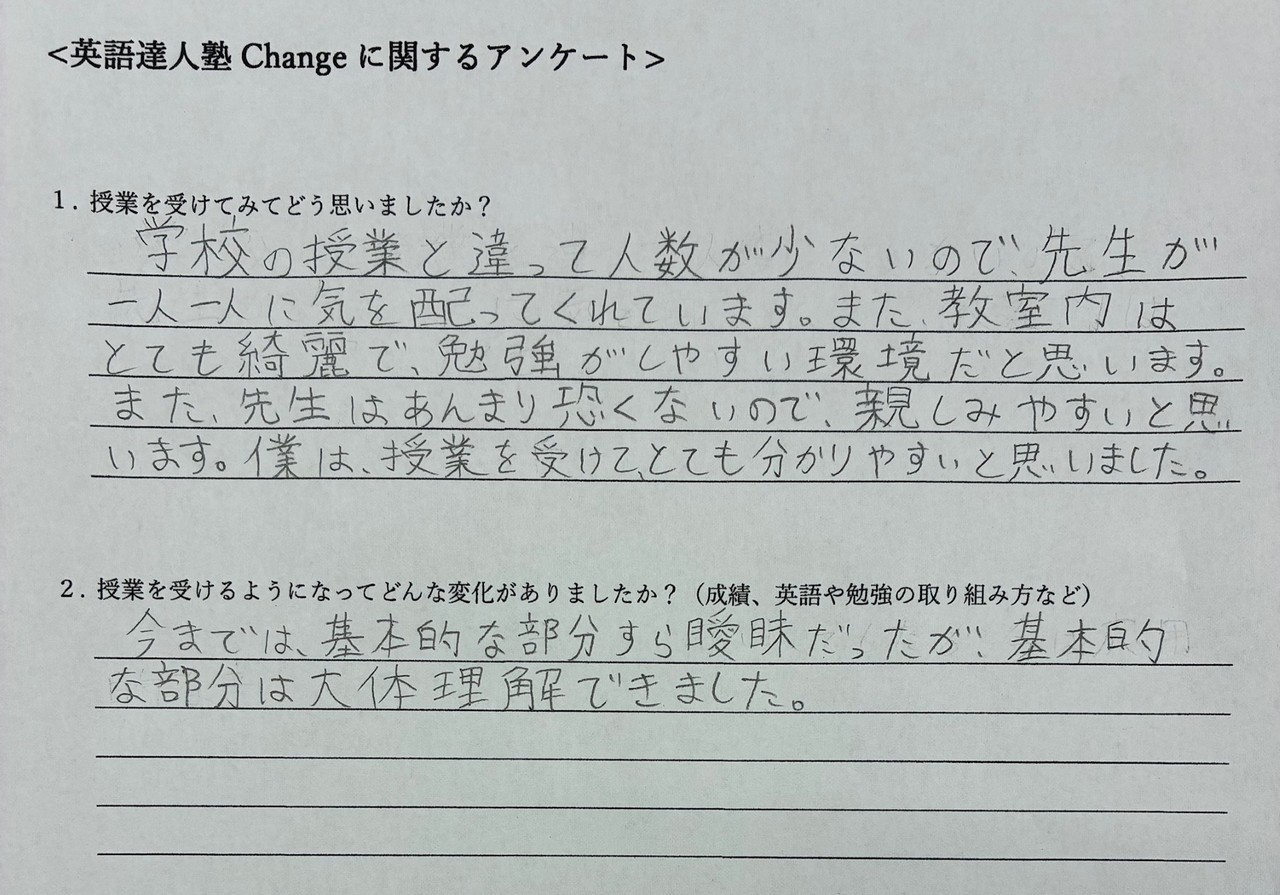 <英語達人塾 Change に関するアンケート>
1. 授業を受けてみてどう思いましたか？
学校の授業と違って人数が少ないので、先生が
一人一人に気を配ってくれています。また、教室内は
とても綺麗で、勉強がしやすい環境だと思います。
また、先生はあんまり恐くないので、親しみやすいと思
います。僕は、授業を受けて、とても分かりやすいと思いました。
2. 授業を受けるようになってどんな変化がありましたか？（成績、英語や勉強の取り組み方など）
今までは、基本的な部分すら曖昧だったが、基本的
な部分は大体理解できました。